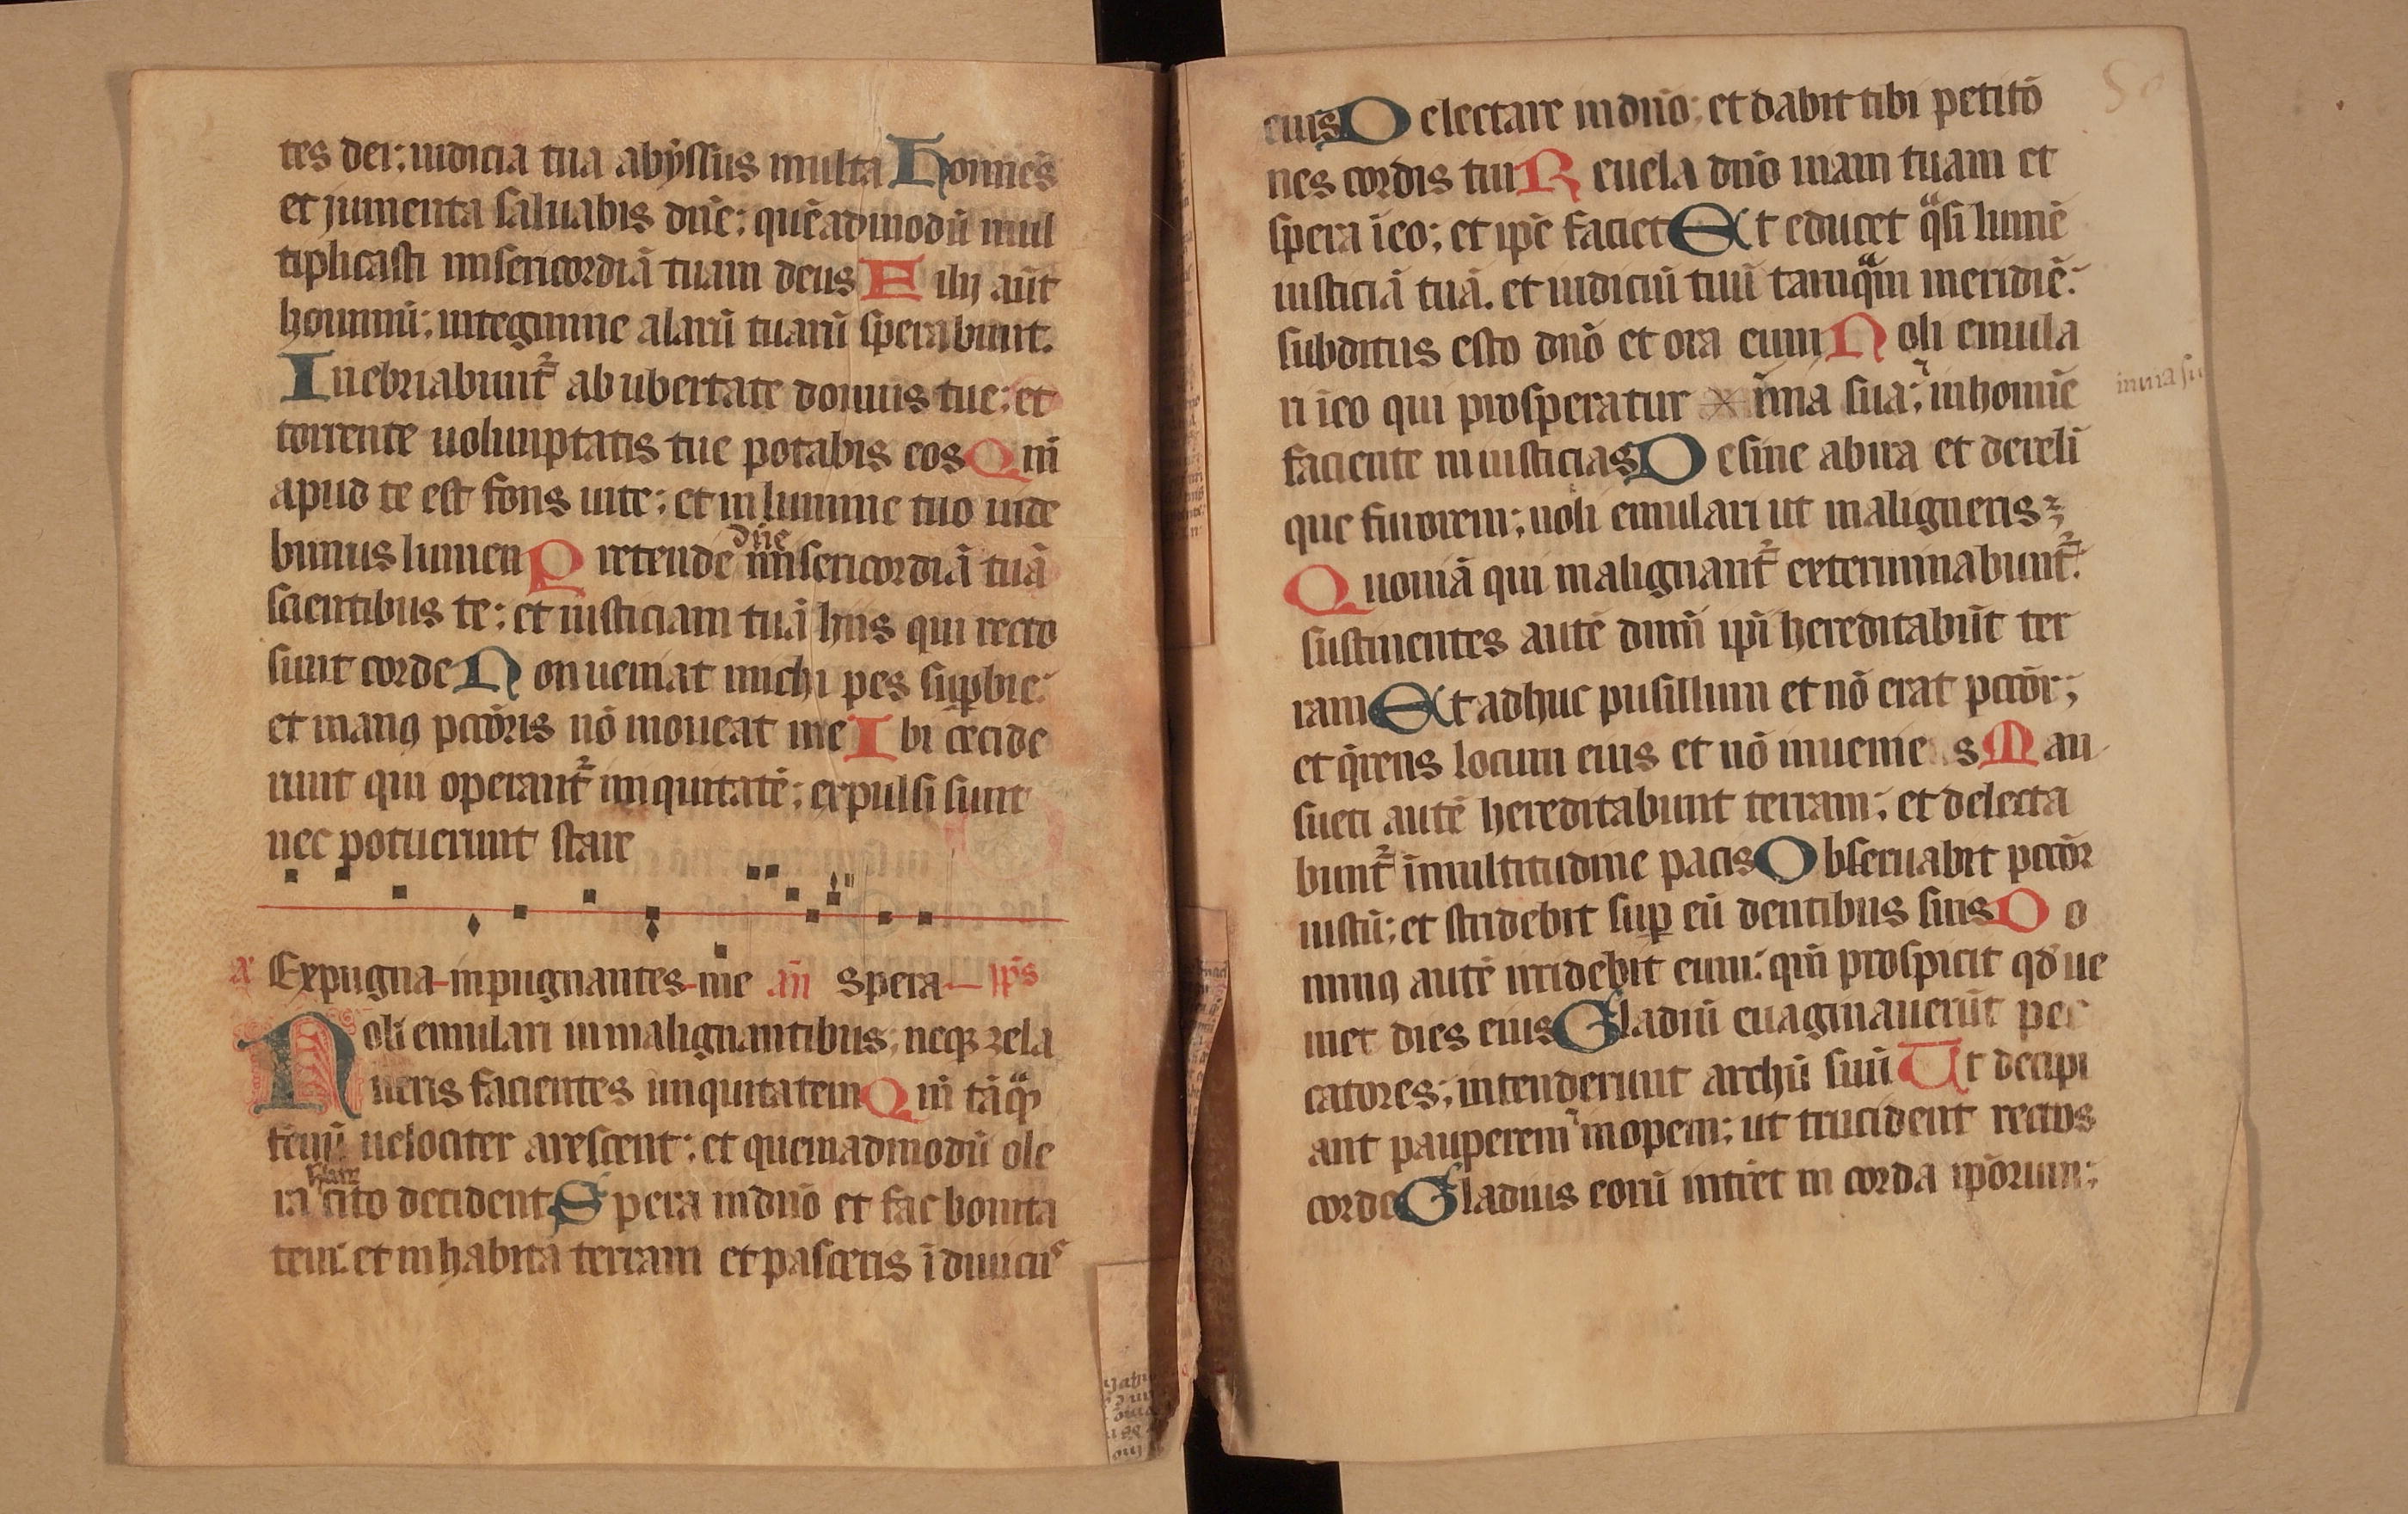 tes dei; iudicia tua abyssus multa Homines
et jumenta saluabis dñe; quēadmodū mul
tiplicasti misericordiā tuam deus Filij aūt
hominū; integmine alarū tuarū sperabunt.
Inebriabunt᷑ ab ubertate domus tue; et
torrente uolunptatis tue potabis eos Qm̄
apud te est fons uite; et in lumine tuo uide
bimus lumen Pretende dñe misericordiā tuā
scientibus te; et iusticiam tuā hiis qui recto
sunt corde Non ueniat michi pes suꝑbie;
et manꝰ pctōris nō moueat me Ibi cecide
runt qui operant᷑ iniquitatē; expulsi sunt
nec potuerunt stare
a᷑ Expugna inpugnantes me añ Spera ip̄s
Noli emulari in malignantibus; neqꝫ zela
ueris facientes iniquitatem Qm̄ tāqᷓ
fenū uelociter arescent; et quemadmodū ole
ra h̾barū cito decident Spera in dño et fac bonita
tem; et inhabita terram et pasceris ī diuiciis
eius Delectare in dño; et dabit tibi petitō
nes cordis tui Reuela dño uiam tuam et
spera ī eo; et ip̄e faciet Et educet qᷓsi lumē
iusticiā tuā. et iudiciū tuū tamqᷓm meridiē;
subditus esto dnō et ora eum Noli emula
ri ī eo qui prosperatur ĩ uia sua; in homīe
faciente iniusticias Desine ab ira et dereli
que furorem; noli emulari ut maligneris
Quoniā qui malignant᷑ exterminabunt᷑;
sustinentes autē dnm̄ ip̄i hereditabūt ter
ram Et adhuc pusillum et nō erit pctōr;
et q̄rens locum eius et nō inuenies Man
sueti autē hereditabunt terram; et delecta
bunt᷑ ī multitudine pacis Obseruabit pctōr
iustū; et stridebit suꝑ eū dentibus suis Do
minꝰ autē irridebit eum; qm̄ prospicit qđ ue
niet dies eius Gladiū euaginauerūt pec
catores; intenderunt archū suū Ut decipi
ant pauperem inopem; ut trucident rectos
corde Gladius eorū intret in corda ip̄orum;
in uia su